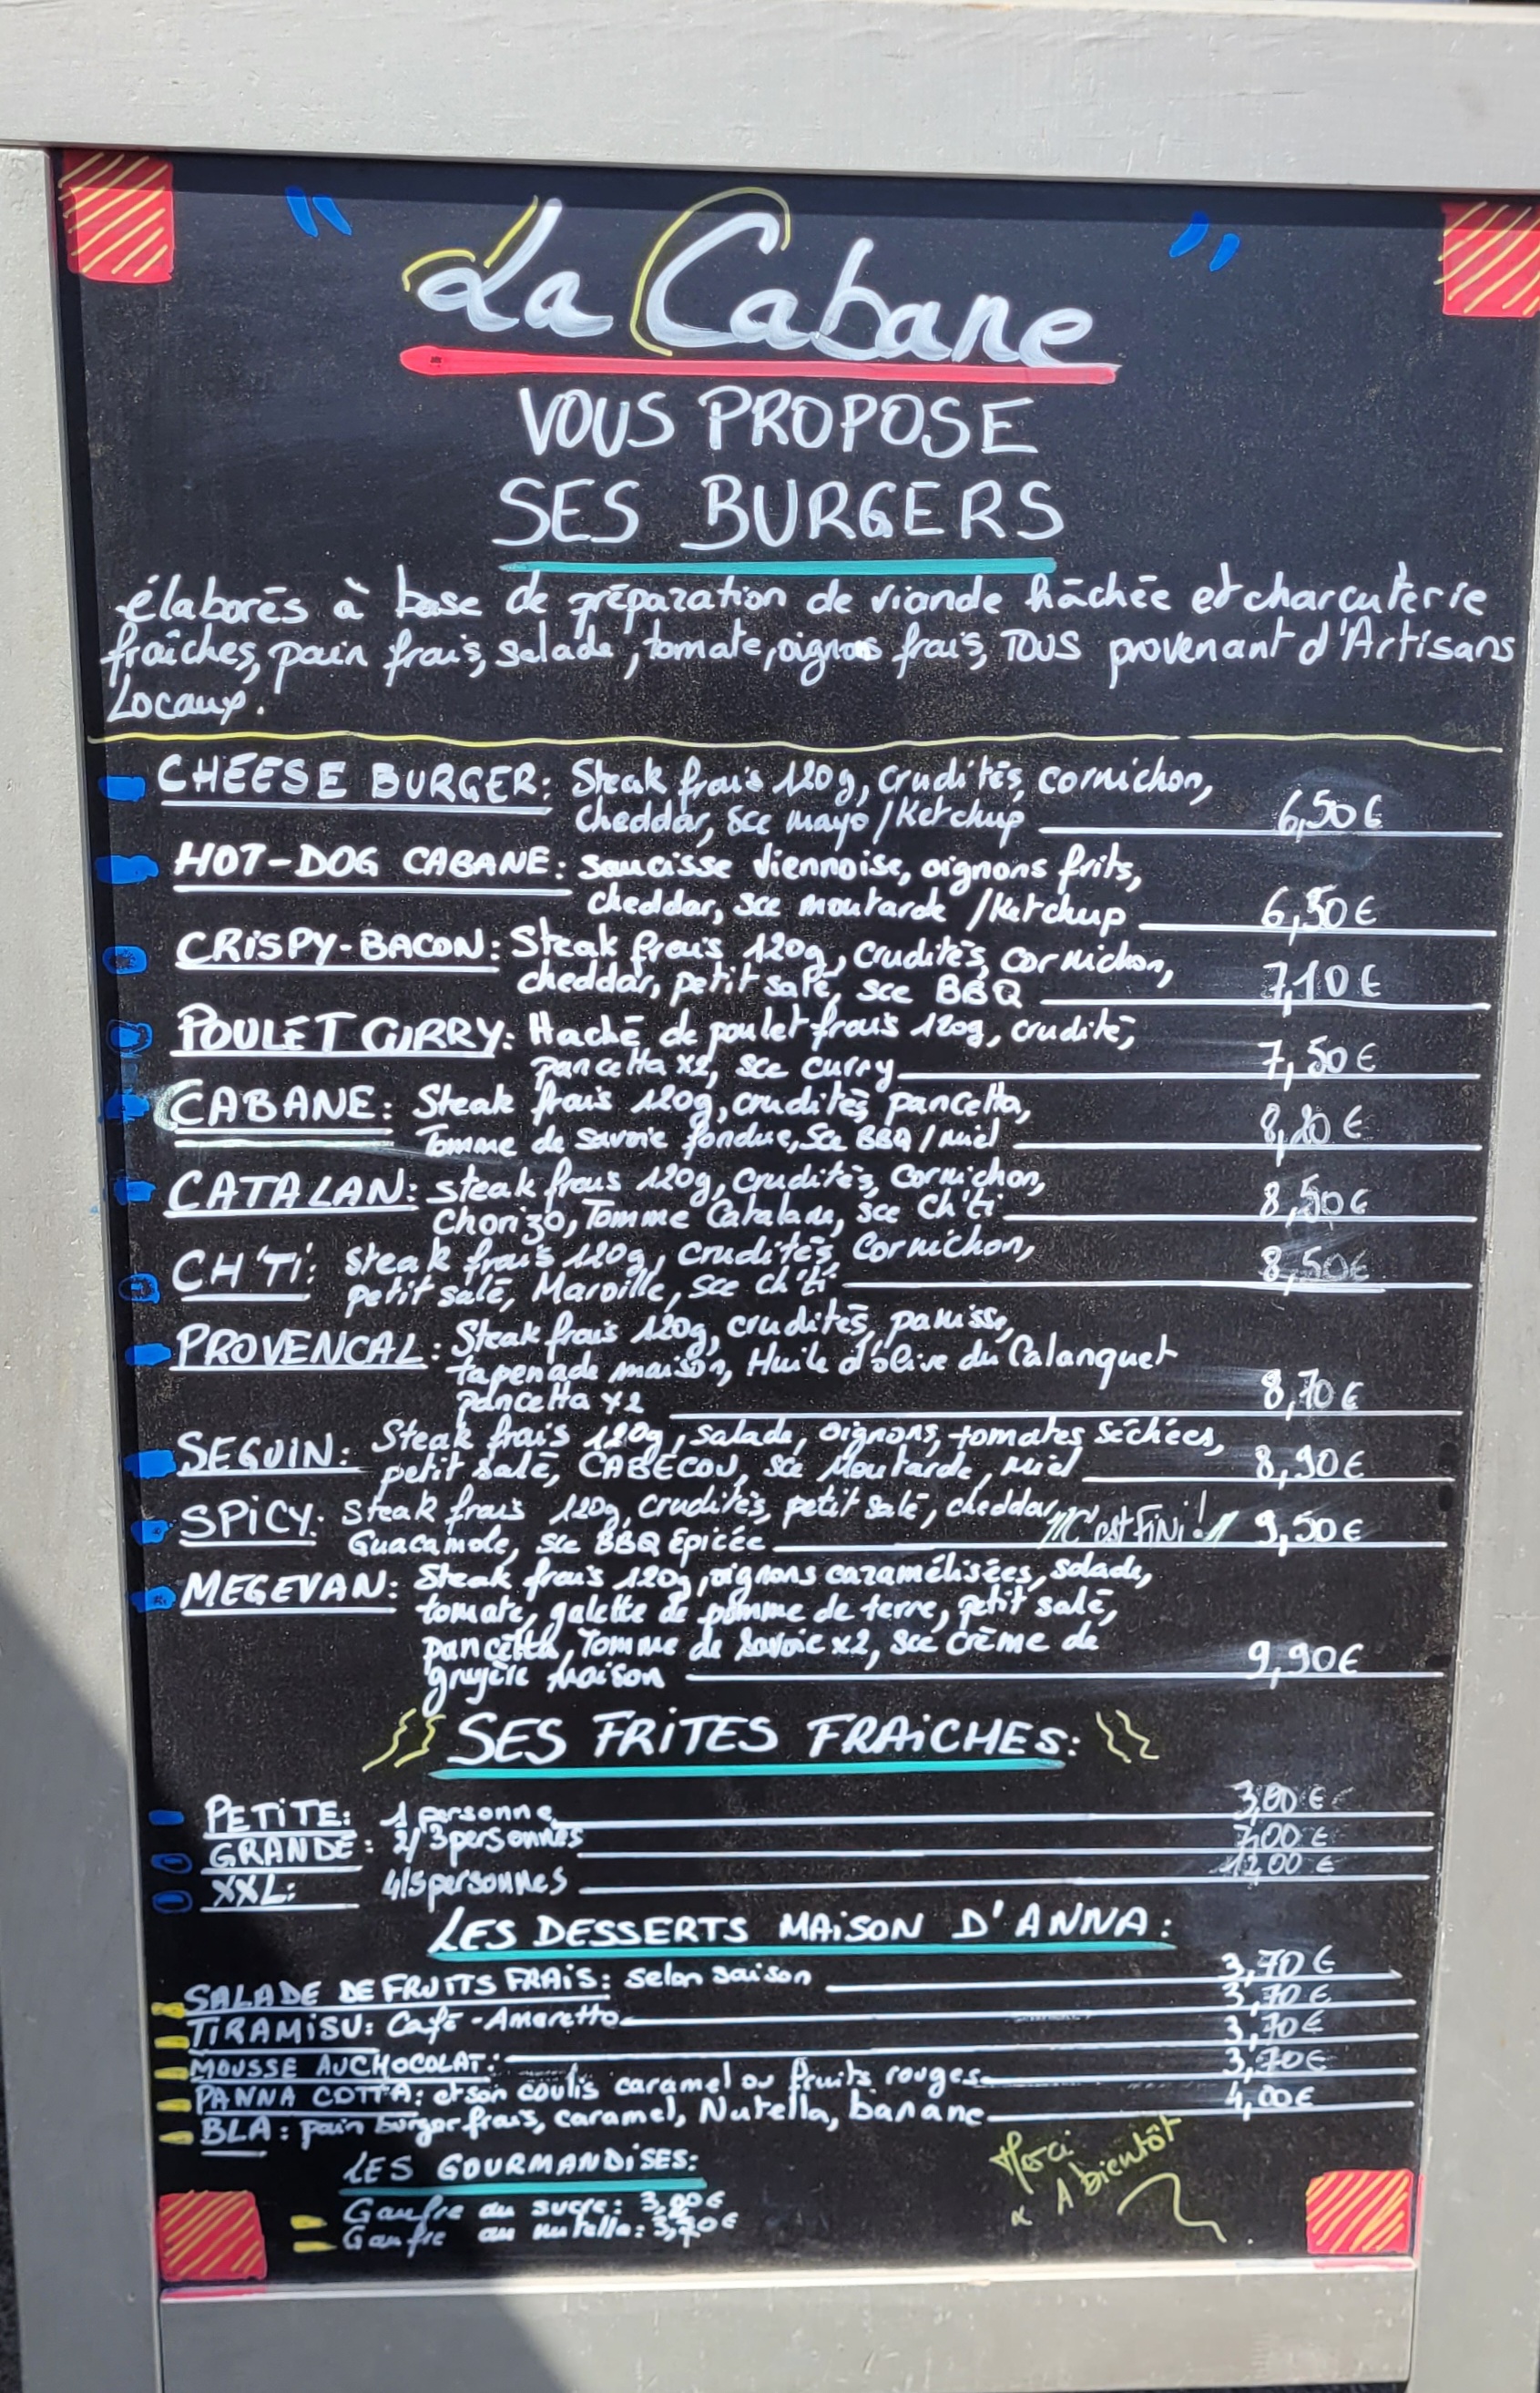 " La Cabane "
VOUS PROPOSE
SES BURGERS
élaborés à base de préparation de viande hâchée et charcuterie
fraîches, pain frais, salade, tomate, oignons frais, TOUS provenant d'Artisans
Locaux.
CHEESE BURGER: Steak frais 120g, crudités, cornichon,
cheddar, sce mayo/Ketchup 6,50€
HOT-DOG CABANE: saucisse viennoise, oignons frits,
cheddar, sce moutarde /Ketchup 6,50€
CRISPY-BACON: Steak frais 120g, crudités, cornichon,
cheddar, petit salé, sce BBQ 7,10€
POULET CURRY: Haché de poulet frais 120g, crudité,
pancetta x2, sce curry 7,50€
CABANE: Steak frais 120g, crudités, pancetta,
Tomme de savoie fondue, sce BBQ/miel 8,20€
CATALAN: steak frais 120g, crudités, cornichon,
Chorizo, Tomme Catalane, sce Ch'ti 8,50€
CH'Ti: steak frais 120g, crudités, cornichon,
petit salé, Maroille, sce ch'ti 8,50€
PROVENCAL: Steak frais 120g, crudités, panisse,
tapenade maison, Huile d'olive du Calanquet
pancetta x2 8,70€
SEGUIN: Steak frais 120g, salade, oignons, tomates séchées,
petit salé, CABECOU, sce Moutarde, miel 8,90€
SPiCY: Steak frais 120g, crudités, petit salé, cheddar,
Guacamole, sce BBQ Epicée C'est FiNi! 9,50€
MEGEVAN: Steak frais 120g, oignons caramélisées, salade,
tomate, galette de pomme de terre, petit salé,
pancetta, Tomme de Savoie x2, sce crème de
gruyère maison 9,90€
SES FRITES FRAiCHES:
PETiTE: 1 personne 3,00€
GRANDE: 2/3 personnes 7,00€
XXL: 4/5 personnes 12,00€
LES DESSERTS MAiSON D'ANNA:
SALADE DE FRUITS FRAiS: selon saison 3,70€
TiRAMiSU: Café-Amaretto 3,70€
MOUSSE AU CHOCOLAT: 3,70€
PANNA COTTA: et son coulis caramel ou fruits rouges 3,70€
BLA: pain burger frais, caramel, Nutella, banane 4,00€
LES GOURMANDiSES:
Gaufre au sucre: 3,00€
Gaufre au nutella: 3,70€
Merci
& A bientôt